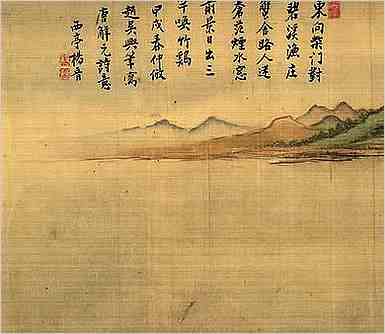 東向柴门對
碧溪漁庄
蟹舍路人迷
蒼茫煙水窓
前景日出三
干喚竹鷄
甲戌春仲倣
趙吳興筆寓
唐解元詩意
西亭楊晉